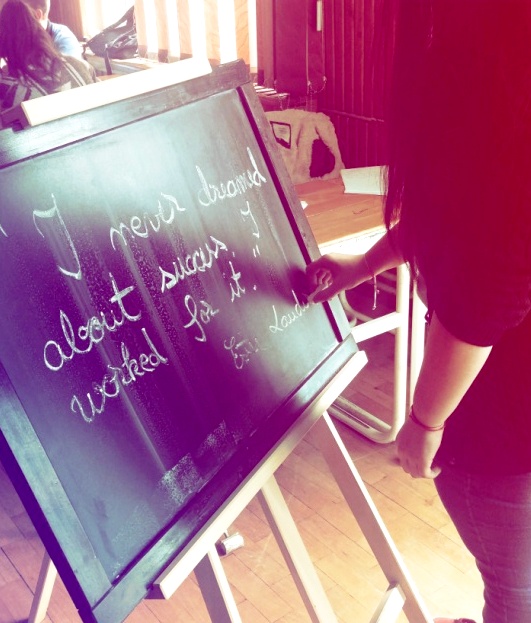 "I never dreamed
about success. I
worked for it."
Estée Laude